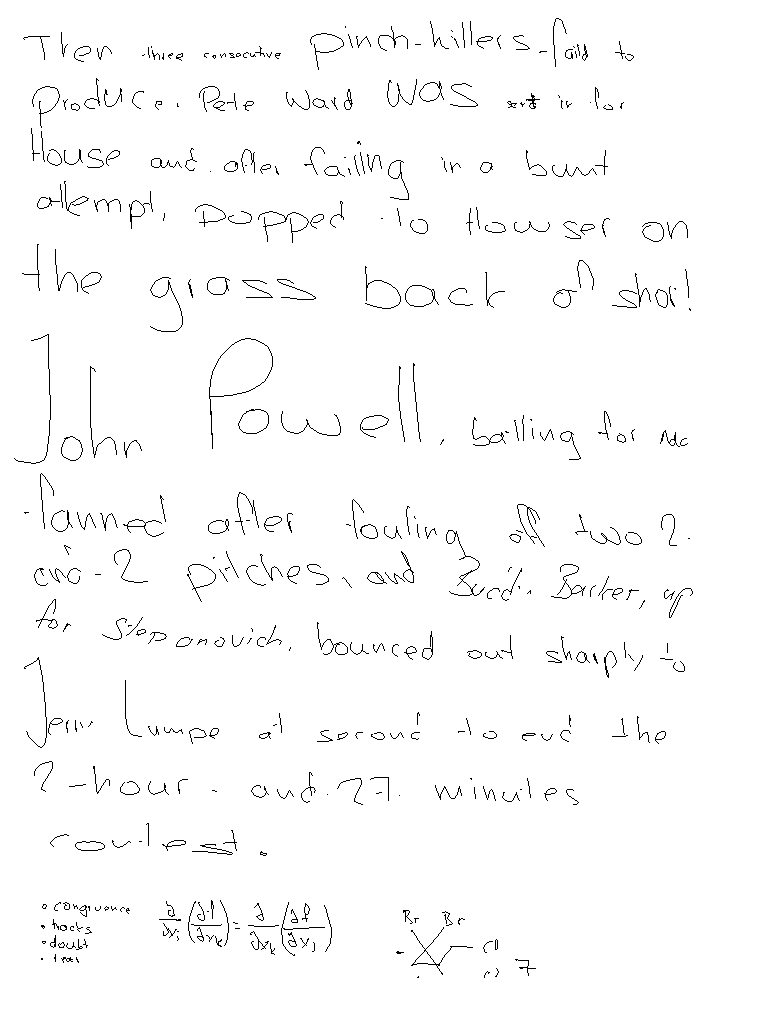 Then three consecutive pinch-hitters faild to
produce. Pete Ward was sent in for
House and after failing in a bunt
attempt, popped to Howser on
the grass back of short
John Powell, batting for
fanned after fouling off two 2-
and-2 pitches, and Buddy Barker, up
for Stepanovich, bounced out sharply to
Jerry Lumpe at second to end the
2-hour-and-27 minutes
contest.
• congruence
• hacks
• doubt
•
∂/∂xⱼ (∂f/∂xₖ) = ∂/∂xₖ (∂f/∂xⱼ)
Br Br
Cl
7